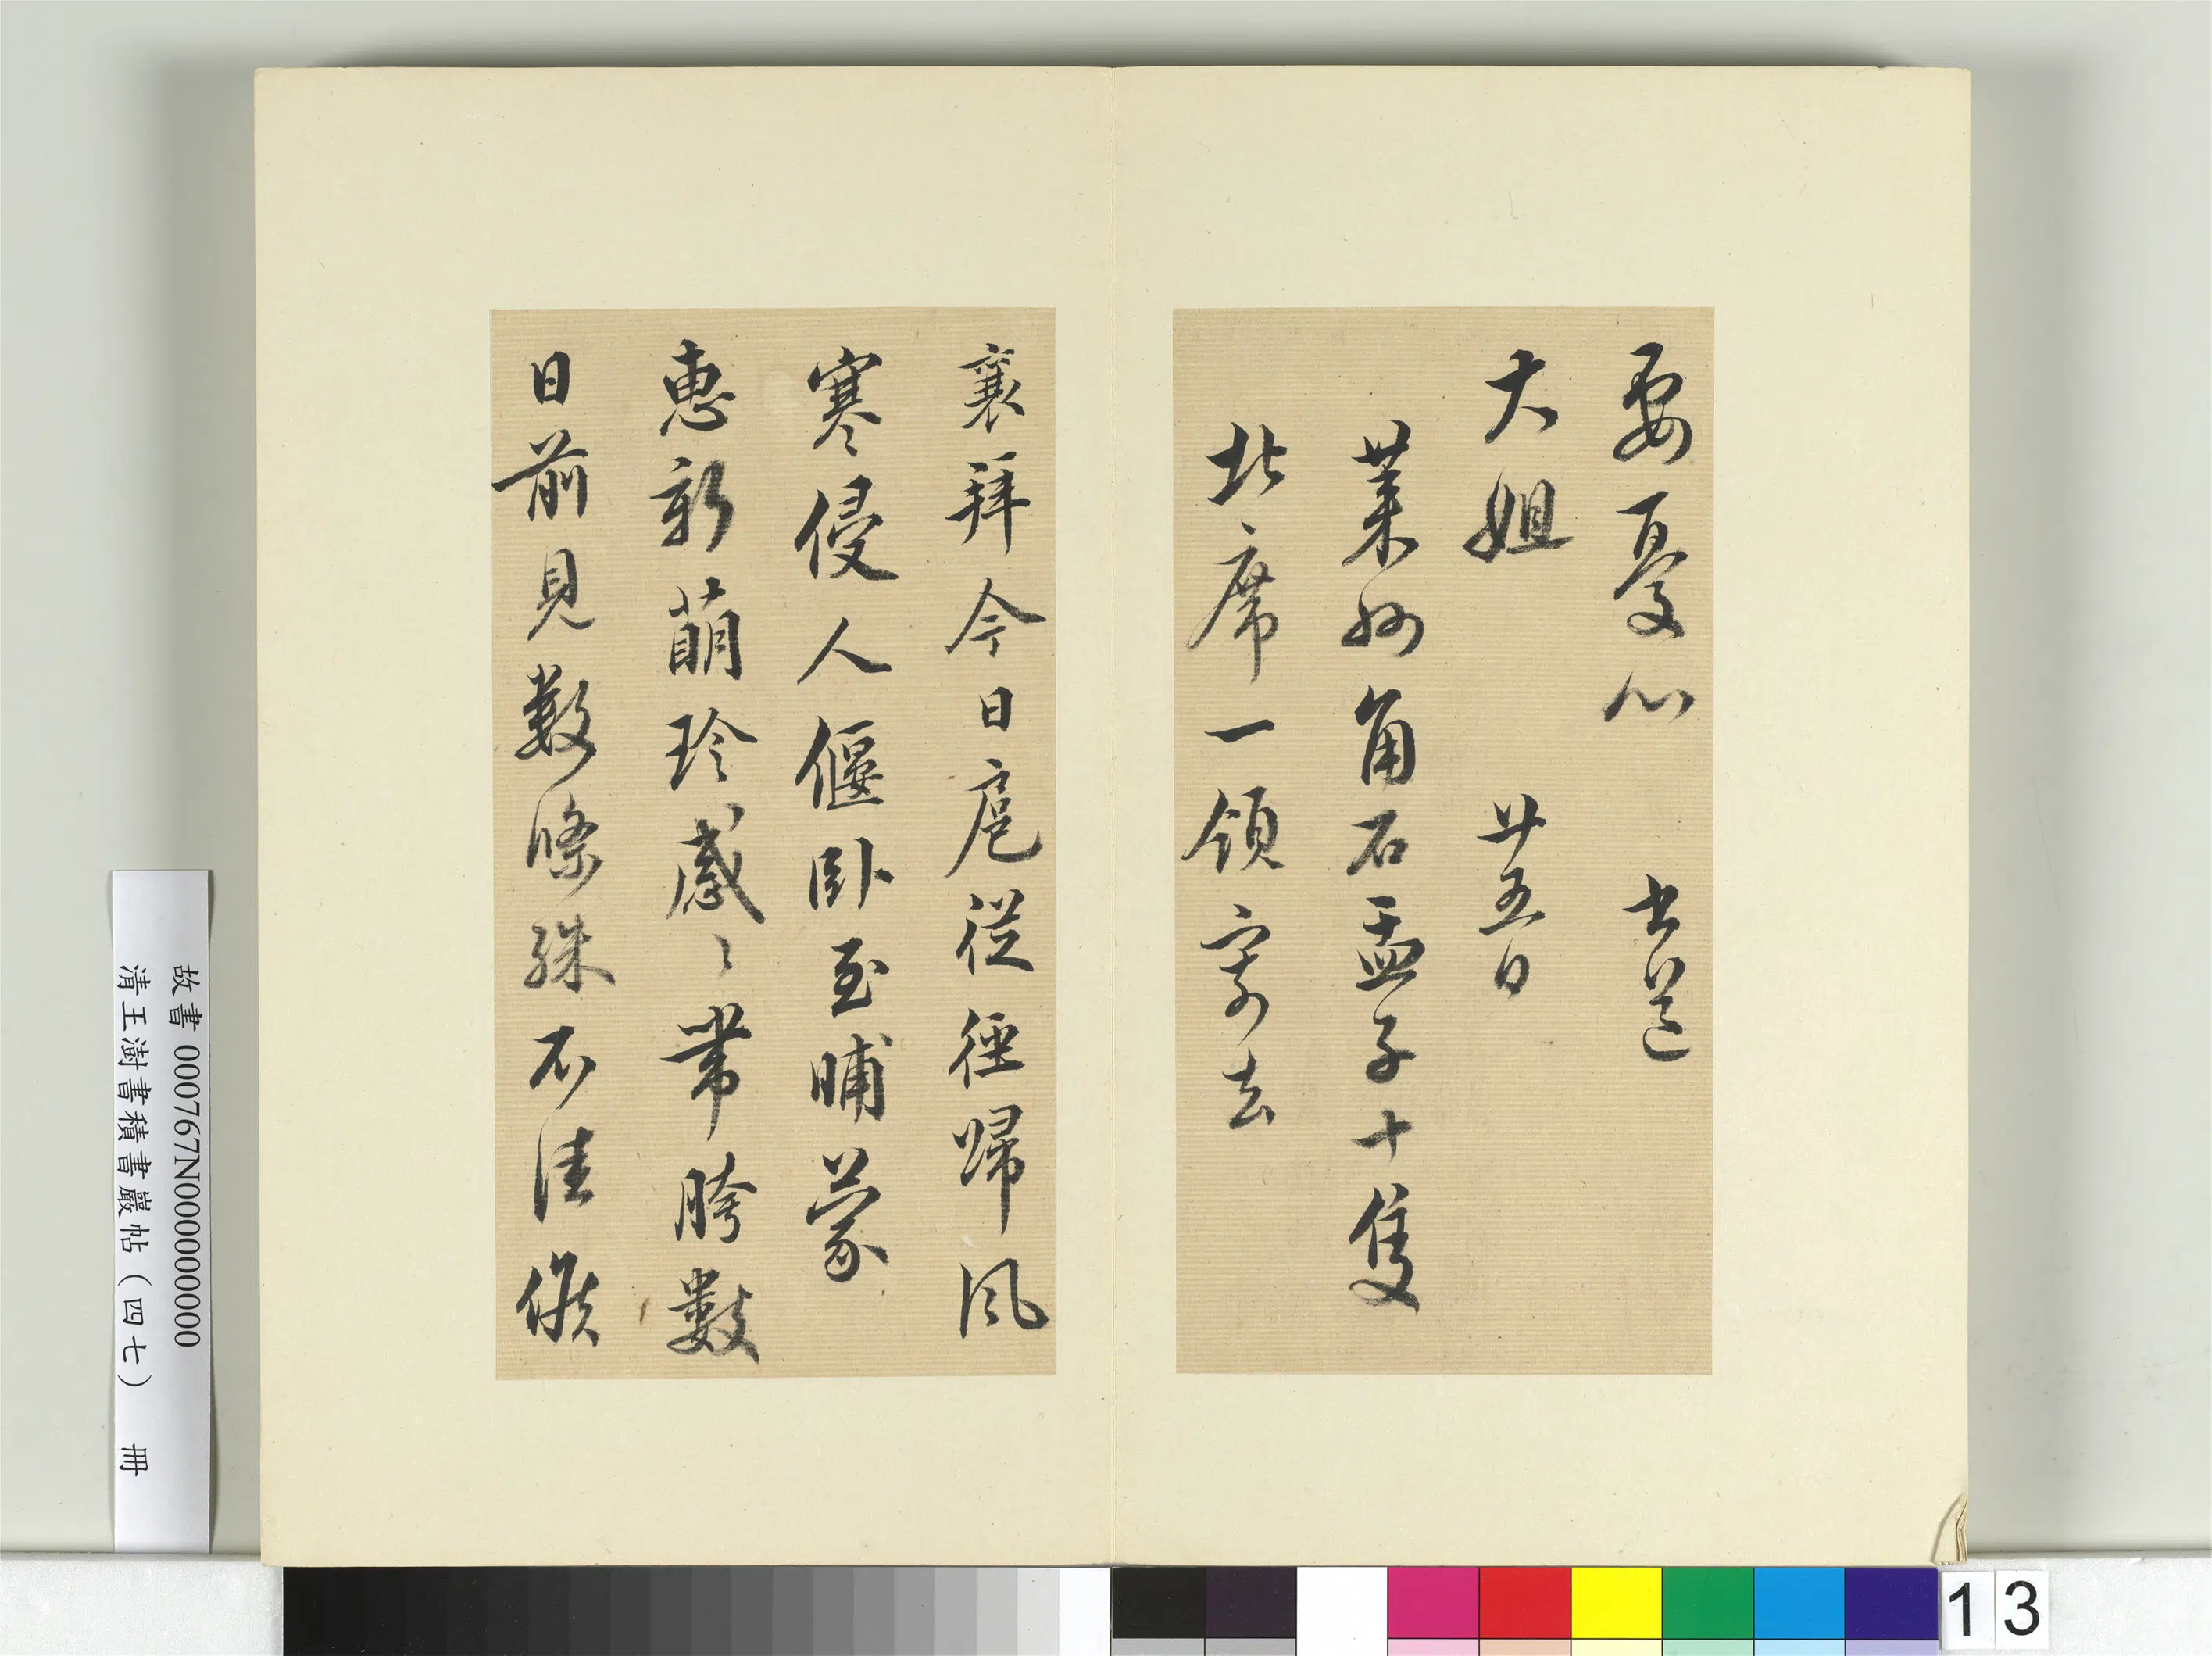 要憂心　書送
大姐　廿五日
萊州角石盂子十隻
北席一領寄去
襄拜今日扈從徑歸風
寒侵人偃臥至晡蒙
惠新萌珍感〻帶胯數
日前見數條殊不佳候
故書 000767N000000000
清王澍書積書巖帖（四七）　冊
13